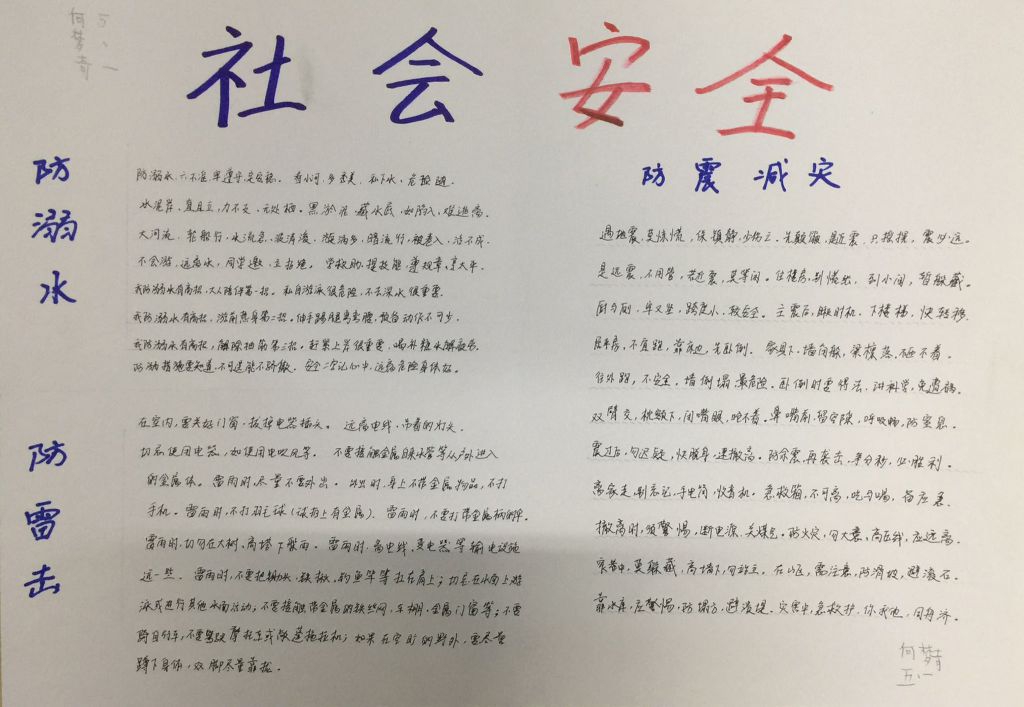 五、一
何梦奇
社会安全
防溺水
防溺水,六不准,牢遵守,是会标。有小河,乡里美,私下水,危险随。
水泥岸,直且立,力不支,无处栖。黑淤泥,藏水底,如陷入,难逃离。
大河流,轮船行,水流急,浪涛凌,漩涡多,暗流行,被卷入,活不成。
不会游,远离水,同学邀,立拒绝。学救助,提技能,遵规章,享太平。
我防溺水有高招,大人陪伴第一招。私自游泳很危险,不去深水很重要。
我防溺水有高招,游前热身第二招。伸手踢腿弯弯腰,热身动作不可少。
我防溺水有高招,解除抽筋第三招,赶紧上岸很重要,喝补糖水解疲劳。
防溺措施要知道,不可逞能不骄傲。安全二字记心中,远离危险身体好。
防雷击
在室内,雷关好门窗,拔掉电器插头。远离电线,吊着的灯头。
切忌使用电器,如使用电吹风等。不要接触金属自来水管等从户外进入
的金属体。雷雨时,尽量不要外出。外出时,身上不带金属物品,不打
手机。雷雨时,不打羽毛球(球拍上有金属)。雷雨时,不要打带金属柄的伞。
雷雨时,切勿在大树,高塔下躲雨。雷雨时,离电线,变电器等输电设施
远一些。雷雨时,不要把锄头,铁锹,钓鱼竿等扛在肩上;切忌在水面上游
泳或进行其他水面活动;不要接触带金属的铁丝网,车棚,金属门窗等;不要
骑自行车,不要驾驶摩托车或敞蓬拖拉机;如果在空旷的野外,要尽量
蹲下身体,双脚尽量靠拢。
防震减灾
遇地震,莫惊慌,保镇静,少伤亡。先颠簸,是近震,只摇摆,震必远。
是远震,不用管,若近震,莫等闲。住楼房,别慌出,到小间,暂躲藏。
厨与厕,牢又坚,跨度小,较安全。主震后,瞅时机,下楼梯,快转移。
居平房,不宜跑,靠床边,先卧倒。家具下,墙角散,梁檩落,砸不着。
往外跑,不安全,墙倒塌最危险。卧倒时要得法,讲科学,免遭祸。
双臂交,枕额下,闭嘴眼,呛不着。鼻嘴前,留空隙,呼吸畅,防窒息。
震过后,勿迟疑,快脱身,速撤离。防余震,再袭击,争分秒,必胜利。
离家走,别忘记,手电筒,收音机。急救箱,不可离,吃与喝,备应急。
撤离时,须警惕,断电源,关煤气。防火灾,勿大意,高压线,应远离。
窄巷中,莫躲藏,高墙下,勿站立。在山区,需注意,防滑坡,避滚石。
靠水库,应警惕,防塌方,避溃堤。灾害中,急救护,你我他,同舟济。
何梦奇
五、一